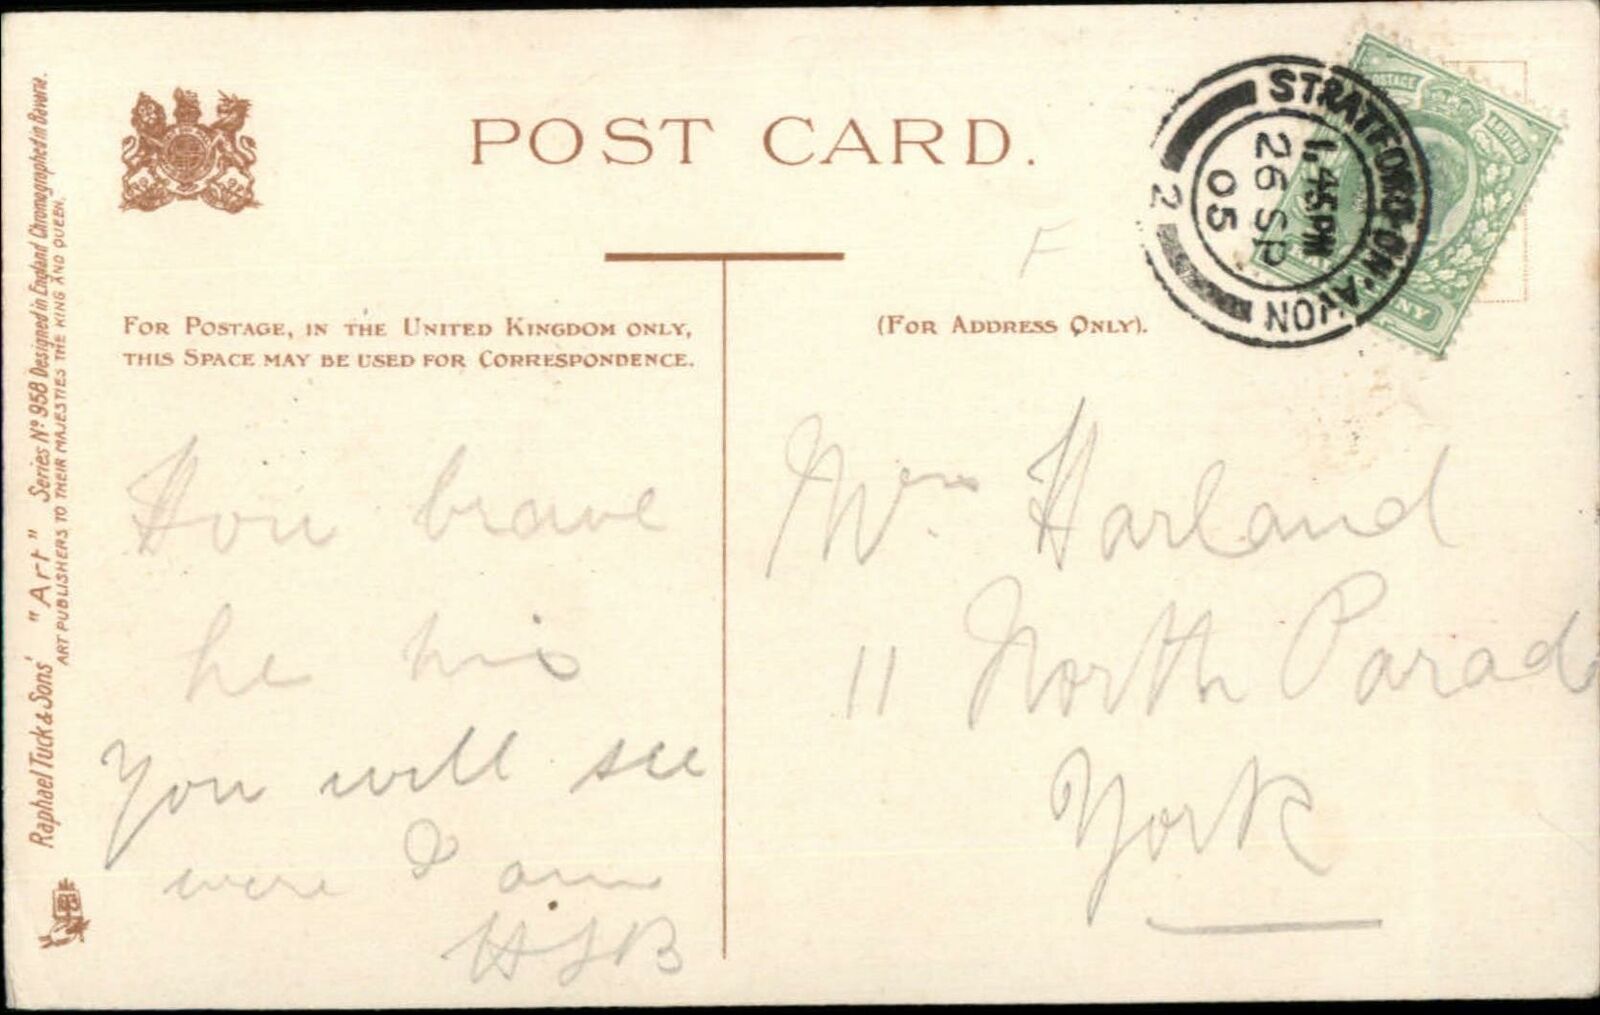 POST CARD.
STRATFORD ON AVON
1.45PM
26 SP
05
2
POSTAGE
FOR POSTAGE, IN THE UNITED KINGDOM ONLY,
THIS SPACE MAY BE USED FOR CORRESPONDENCE.
(FOR ADDRESS ONLY).
F
You will see
were I am
HSB
Harland
11 North Parade
York
Raphael Tuck & Sons' "Art" Series Nº 958 Designed in England Chromographed in Bavaria.
ART PUBLISHERS TO THEIR MAJESTIES THE KING AND QUEEN.